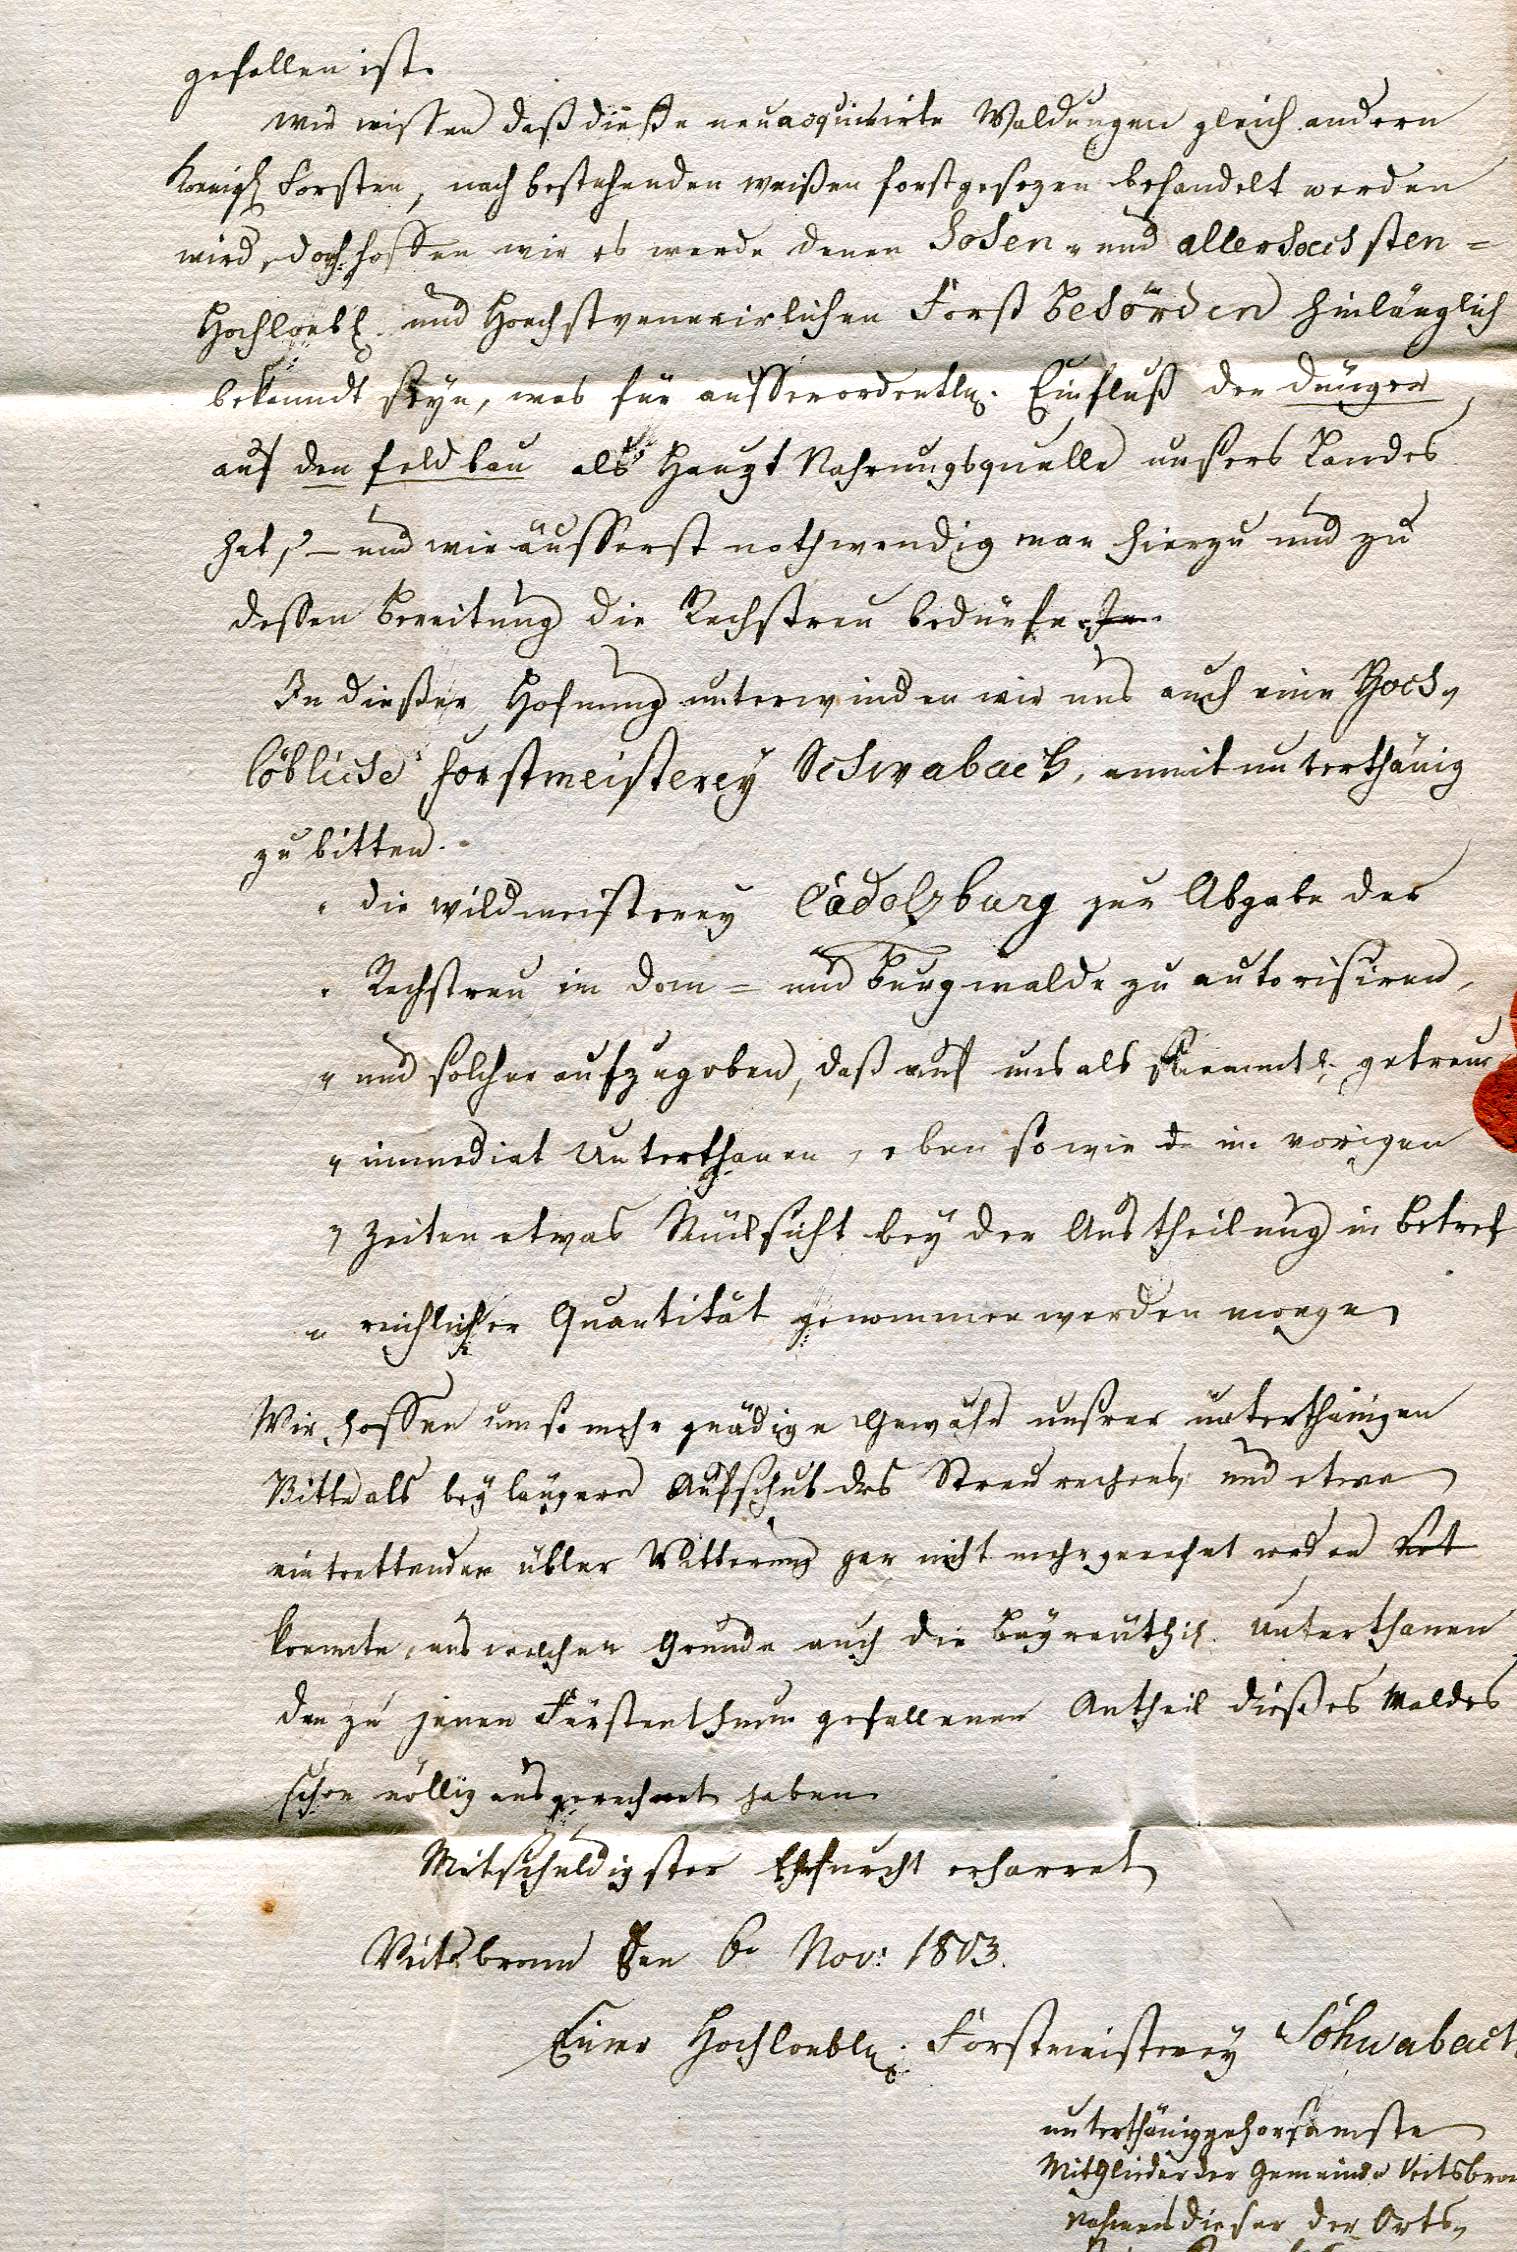 gefallen ist.
wir wissen daß dieße neuacquirirte Waldungen gleich andern
koenigl Forsten, nach bestehenden weißen forstgesezen behandelt werden
wird, doch hoffen wir es werde denen hohen - und allerhoechsten =
Hochloebl. und Hoechstvenerirlichen Forst Behörden hinlänglich
bekanndt seyn, was für ausserordentl. Einfluß der Dünger
auf den feldbau als Haupt Nahrungsquelle unsers Landes
hat, - und wie äusserst nothwendig man hierzu und zu
dessen Bereitung die Rechstreu bedürfe.
In dießer Hofnung unterwinden wir uns auch eine Hoch„
löbliche forstmeisterey Schwabach, anmit unterthänig
zu bitten.
„ die wildmeisterey Cadolzburg zur Abgabe der
„ Rechstreu im Dom = und Burgwalde zu autorisiren,
„ und solcher aufzugeben, daß auf uns als getreue
„ immediat Unterthanen, eben so wie in vorigen
„ Zeiten etwas Rücksicht bey der Austheilung in betref
„ reichlicher Quantität genommen werden moege
Wir hoffen um so mehr gnädige Gewähr unsrer unterthänigen
Bitte als bey längern Aufschub des Streurechens, und etwa
eintrettender übler Witterung gar nicht mehr gerechet werden
koennte, aus welchen Grunde auch die Bayreuthis. Unterthanen
den zu jenen Fürstenthum gefallenen Antheil dießes Waldes
schon völlig ausgerechnet haben
Mit schuldigster Ehrfurcht erharret
Veitsbronn den 6. Nov: 1803.
Einer Hochloebl. Forstmeisterey Schwabach
unterthäniggehorsamste
Mitglieder der Gemeinde Veitsbron
Nahmens dieser der Orts„